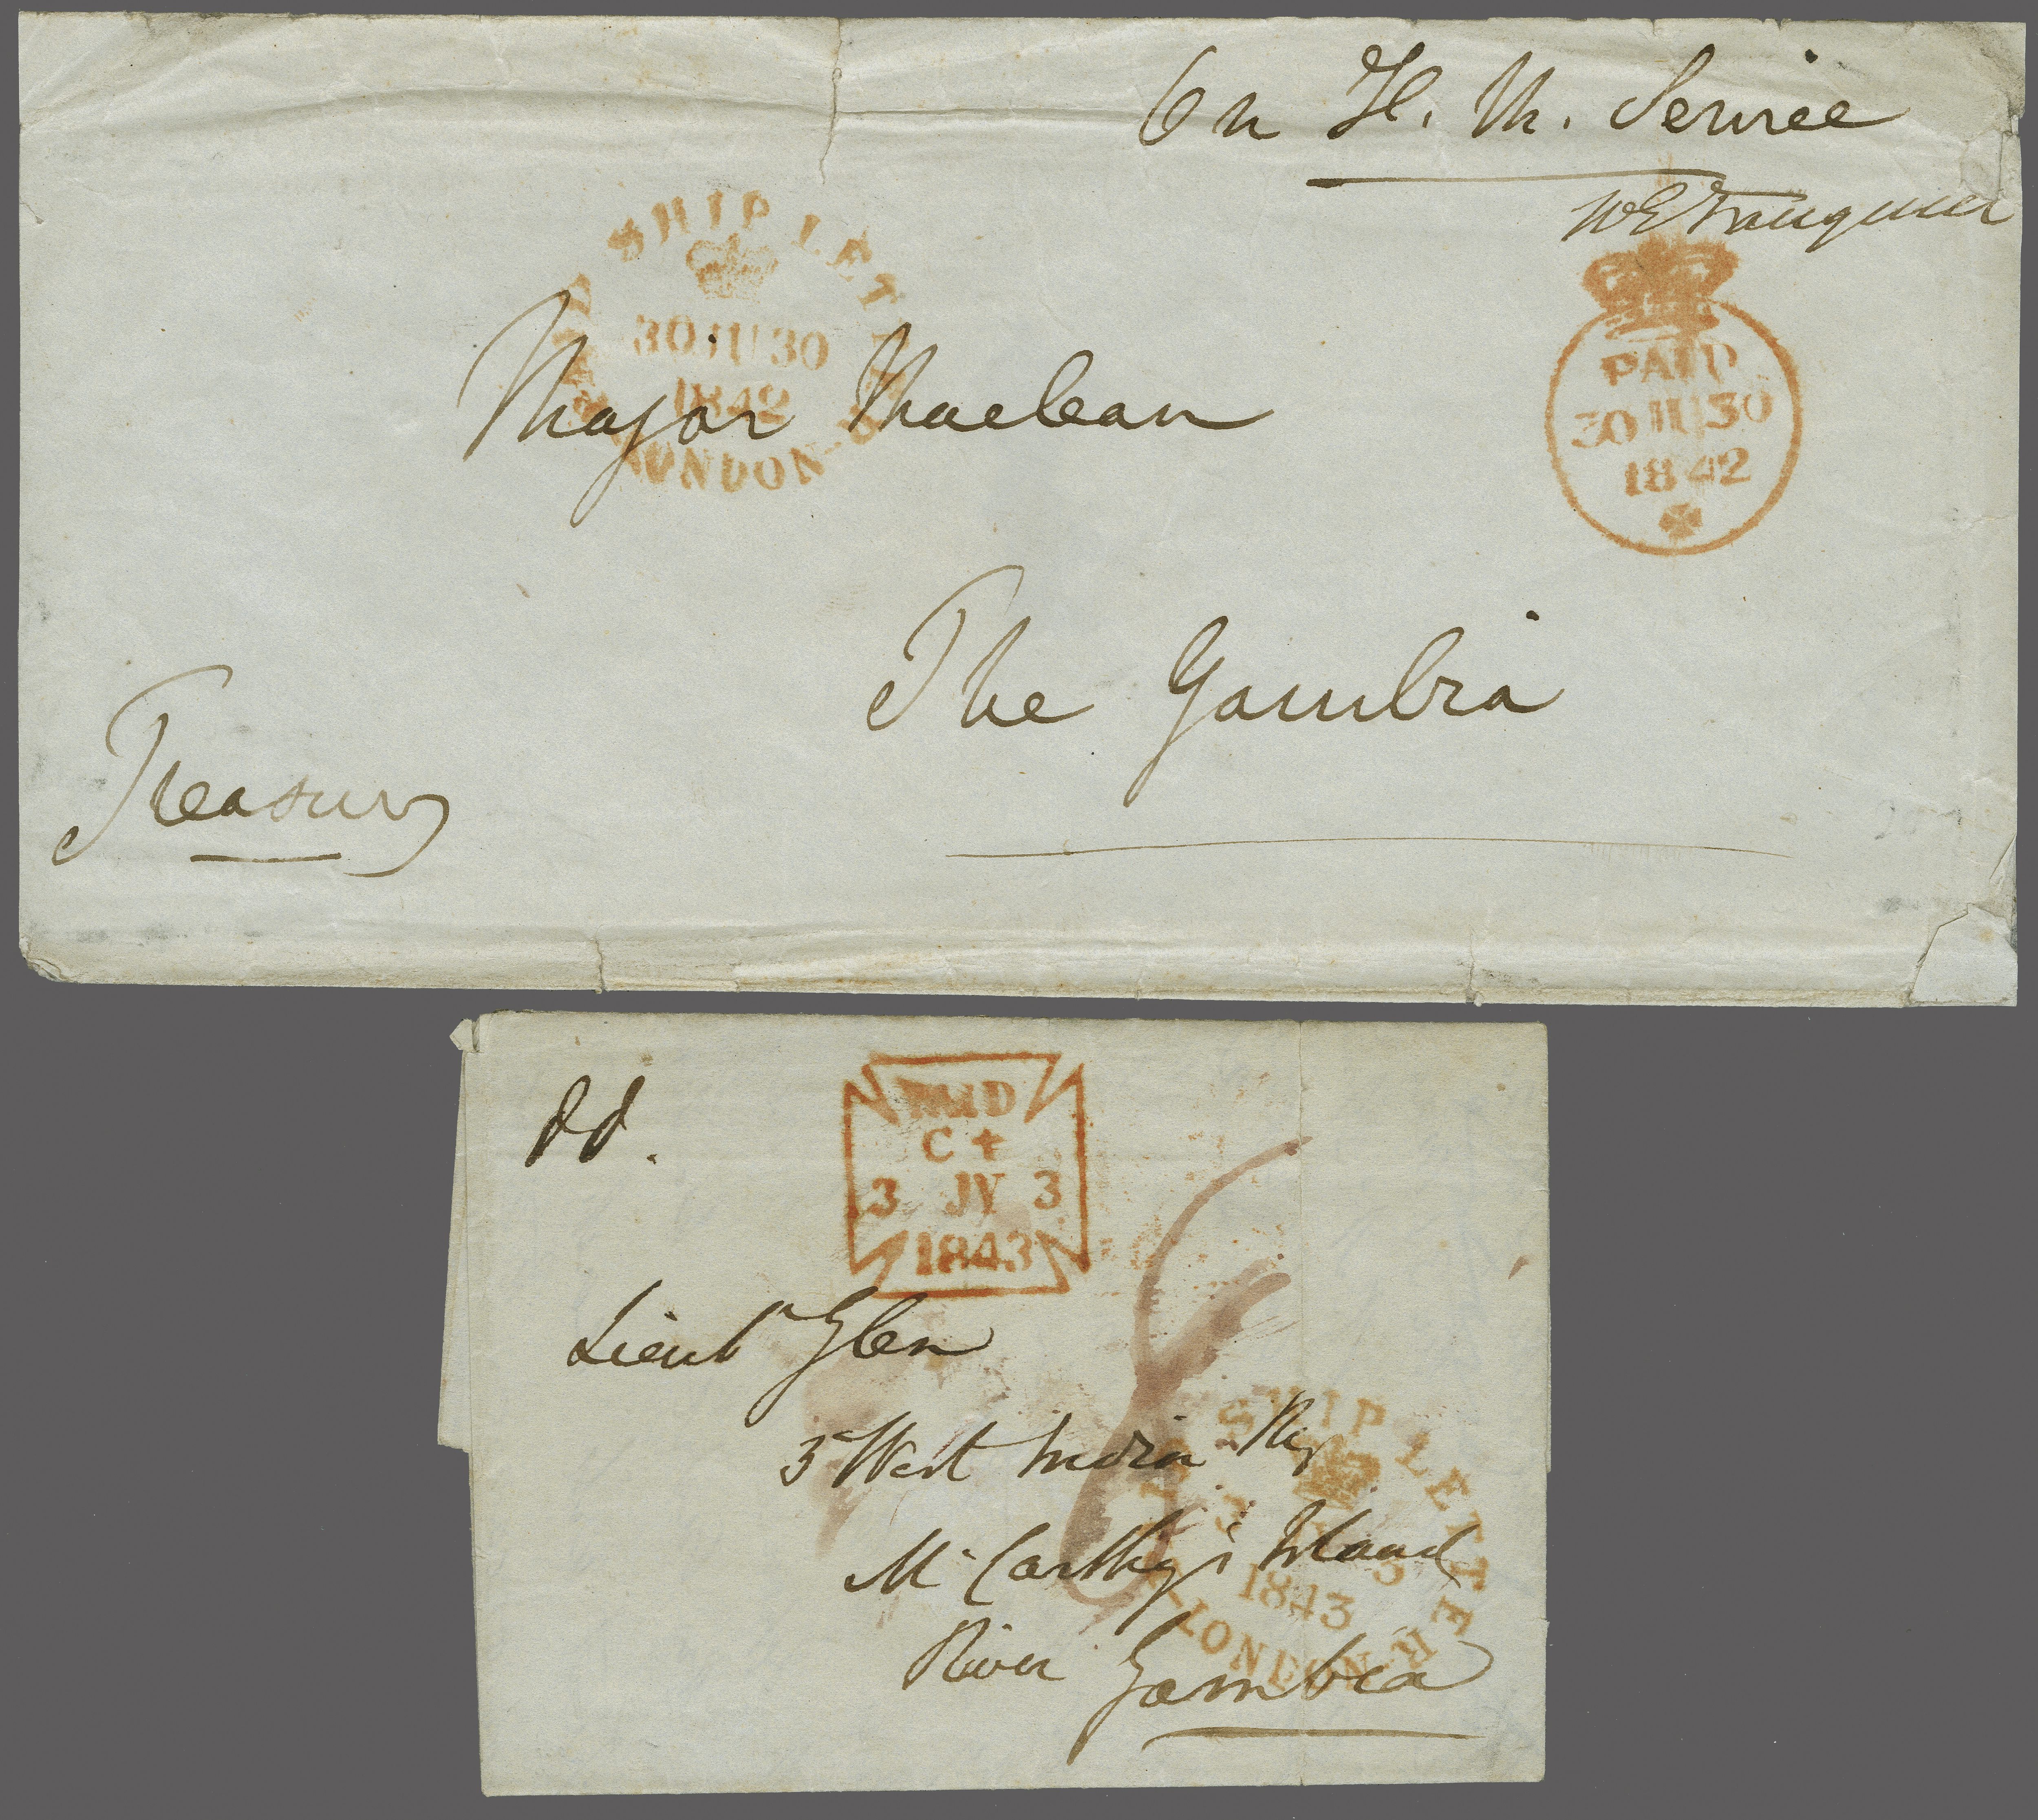 On H. M. Service
SHIP LETTER
30 JU 30
1842
LONDON
PAID
30 JU 30
1842
Major Maclean
The Gambia
Treasury
pd.
PAID
C+
3 JY 3
1843
Lieut Glen
3 West India Reg
McCarthy's Island
River Gambia
SHIP LETTER
3 JY 3
1843
LONDON